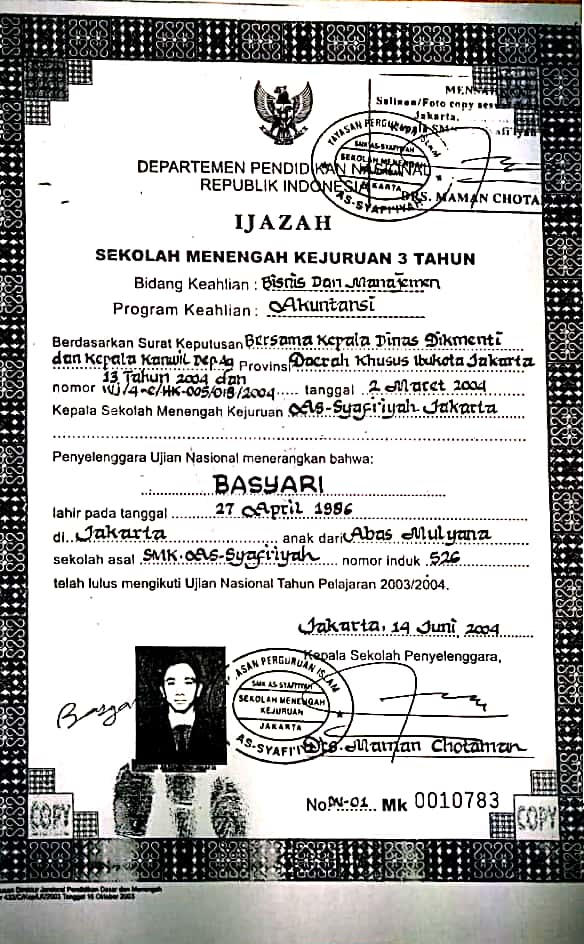 Salinan/Foto copy
Jakarta,
YAYASAN PERGURUAN ISLAM
SMK AS-SYAFI'IYAH
SEKOLAH MENENGAH
JAKARTA
AS-SYAFI'IYAH
DRS. MAMAN CHOTA
DEPARTEMEN PENDIDIKAN NASIONAL
REPUBLIK INDONESIA
IJAZAH
SEKOLAH MENENGAH KEJURUAN 3 TAHUN
Bidang Keahlian : Bisnis Dan Manajemen
Program Keahlian : Akuntansi
Berdasarkan Surat Keputusan Bersama Kepala Dinas Dikmenti
dan Kepala Kanwil Dep.Ag Provinsi Daerah Khusus Ibukota Jakarta
13 Tahun 2004 dan
nomor /4-C/HK-005/018/2004 tanggal 2 Maret 2004
Kepala Sekolah Menengah Kejuruan As-Syafi'iyah Jakarta
Penyelenggara Ujian Nasional menerangkan bahwa:
BASYARI
lahir pada tanggal 27 April 1986
di Jakarta anak dari Abas Mulyana
sekolah asal SMK. As-Syafi'iyah nomor induk 526
telah lulus mengikuti Ujian Nasional Tahun Pelajaran 2003/2004.
Jakarta, 14 Juni 2004
Kepala Sekolah Penyelenggara,
YASAN PERGURUAN ISLAM
SMK AS-SYAFI'IYAH
SEKOLAH MENENGAH
KEJURUAN
JAKARTA
AS-SYAFI'I
Drs. Maman Chotaman
No. DN-01 Mk 0010783
COPY
COPY
usan Direktur Jenderal Pendidikan Dasar dan Menengah
Tanggal 16 Oktober 2003